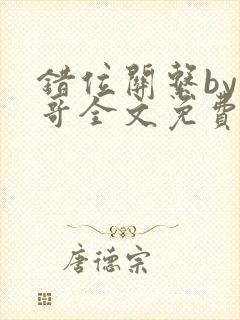 错位關繫by
哥全文免費
唐德宗